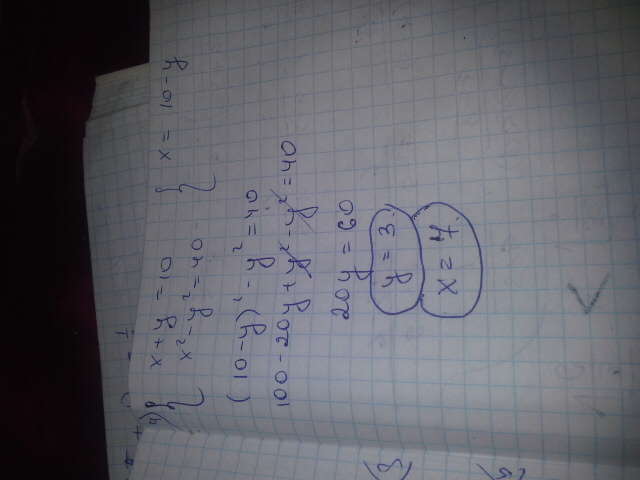 { x + y = 10 { x = 10 - y
x² - y² = 40
(10 - y)² - y² = 40
100 - 20y + y² - y² = 40
20y = 60
y = 3
x = 7